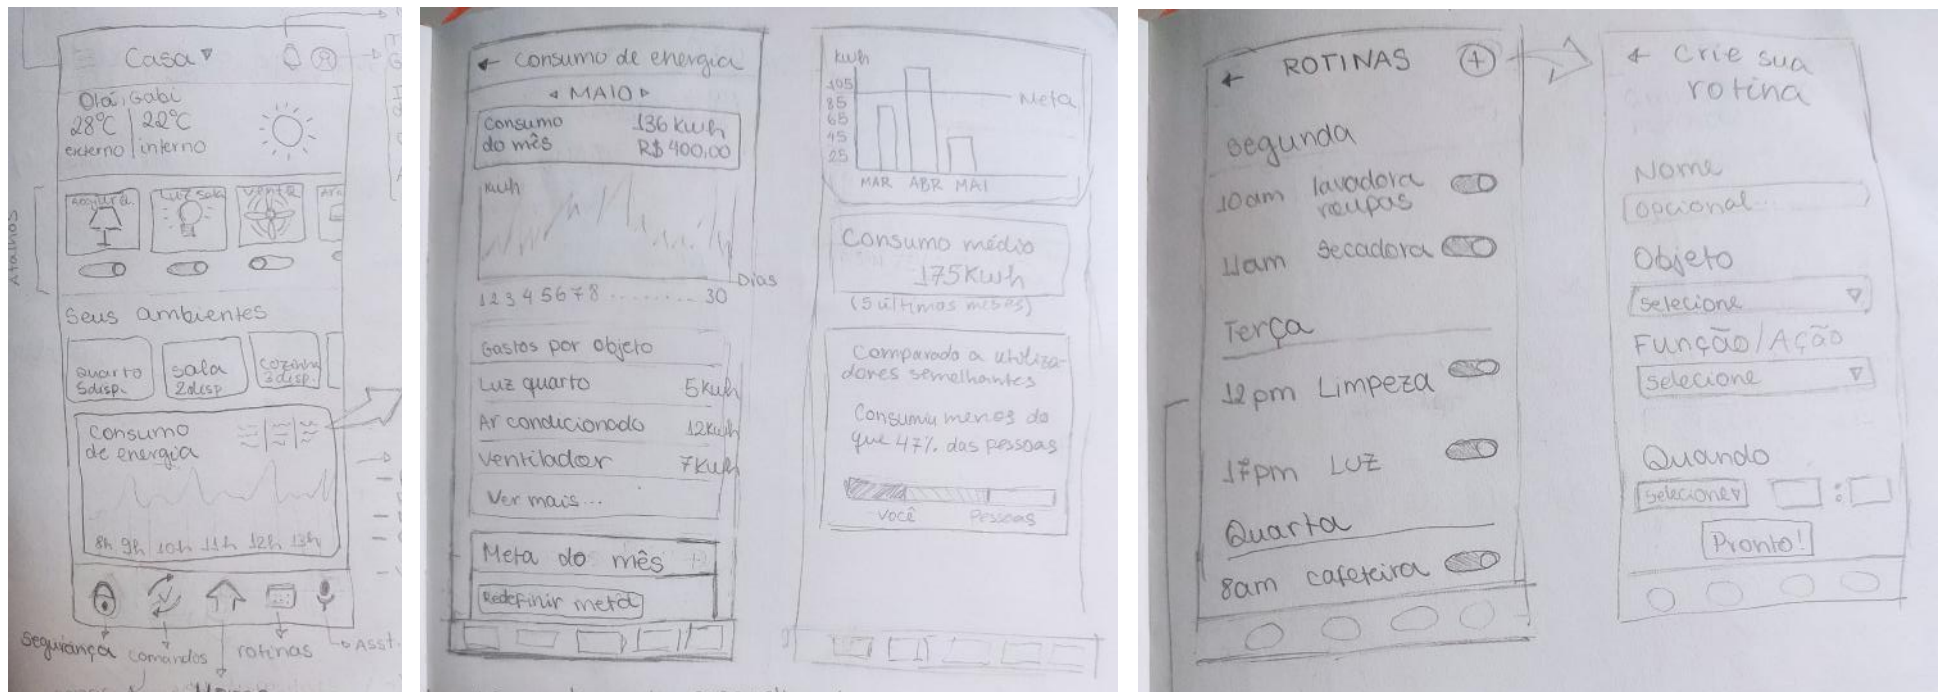 Casa
Olá, Gabi
28°C | 22°C
externo | interno
Atalhos
Luz sala
Vent
Seus ambientes
Quarto
5disp.
Sala
2disp
Cozinha
3disp.
Consumo
de energia
8h 9h 10h 11h 12h 13h
Segurança
comandos
rotinas
Asst.
← Consumo de energia
MAIO
Consumo
do mês
136 Kwh
R$ 400,00
Kwh
Dias
1 2 3 4 5 6 7 8 ......... 30
Gastos por objeto
Luz quarto 5Kwh
Ar condicionado 12Kwh
Ventilador 7Kwh
Ver mais...
Meta do mês
Redefinir meta
Kwh
105
85
65
45
25
Meta
MAR ABR MAI
Consumo médio
175Kwh
(5 últimos meses)
Comparado a utiliza-
dores semelhantes
Consumiu menos do
que 47% das pessoas
você Pessoas
← ROTINAS +
Segunda
10am lavadora
roupas
11am secadora
Terça
12pm Limpeza
17pm LUZ
Quarta
8am cafeteira
← Crie sua
rotina
Nome
opcional...
Objeto
Selecione
Função/Ação
Selecione
Quando
Selecione :
Pronto!